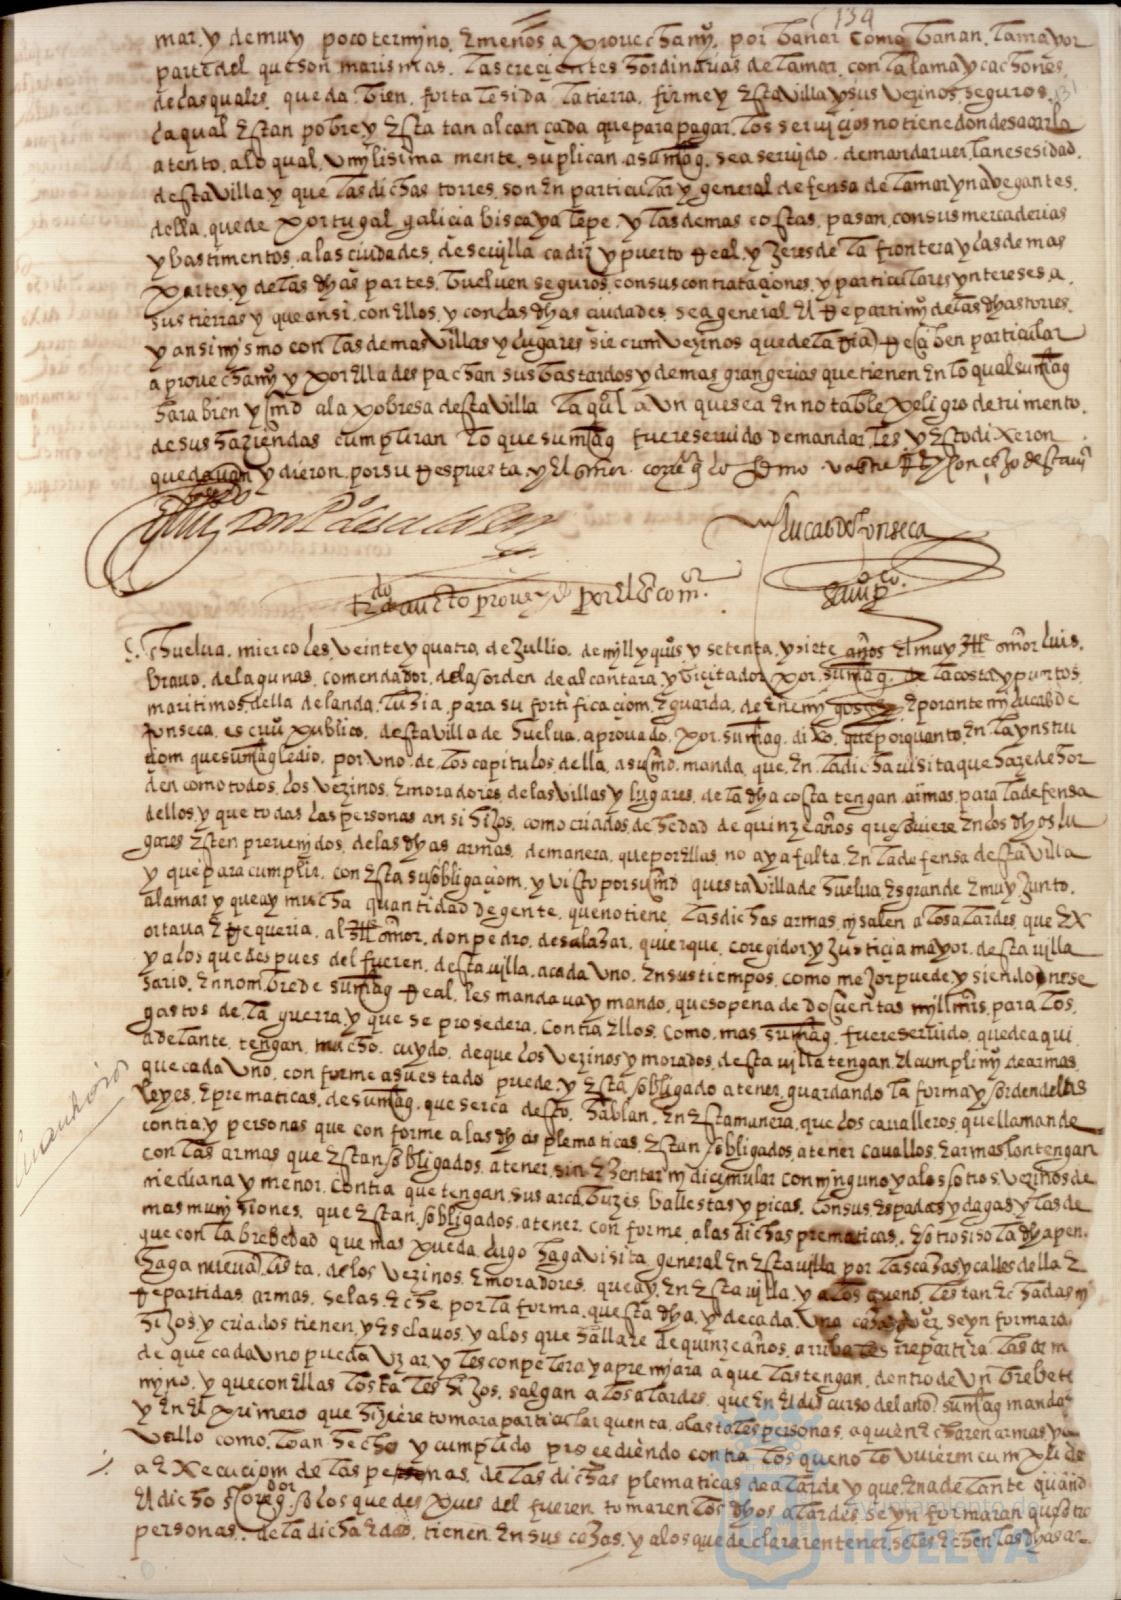 134
mar. y de muy poco termino. E menos aprouechamyº. por bañar como bañan. la mayor
parte del que son marismas. las crecientes hordinarias de la mar. con la lama y cachones
de las quales. queda. bien. fortalesida la tierra. firme y Esta villa y sus vezinos seguros.
la qual Estan pobre y Esta tan alcançada que para pagar. los seruicios no tiene donde sacarla
atento. a lo qual. vmylisima mente. suplican a su mag. sea seruido. de mandar ver la nesesidad.
desta villa y que las dichas torres. son En particular y general defensa de la mar y navegantes.
della. que de portugal galicia biscaya lepe. y las demas costas. pasan. con sus mercaderias
y bastimentos. a las ciudades. de seuylla cadiz y puerto Real. y xeres de la frontera y las demas
partes. y de las dhas partes. bueluen seguros. con sus contrataçiones. y particulares yntereses. a
sus tierras y que ansi. con Ellos. y con las dhas ciudades. sea general El Repartimyº de las dhas torres.
y ansimysmo con las demas villas y lugares sircumvezinos que de la Ria Resciben particular
aprouechamyº y por Ella despachan sus bastardos y demas grangerias que tienen En lo qual su mag
hara bien y md a la pobresa desta villa la ql aun que sea En notable peligro detrimento.
de sus haziendas cumpliran lo que su mag fuere seruido de mandarles y Esto dixeron
que dauan y dieron. por su Respuesta. y El señor. corregor lo firmo
Lucas de fonseca
scriuº puco.
trdo del aucto proueydo por El sr comor.
En huelva. miercoles. veinte y quatro. de Jullio. de mill y quis y setenta. y siete años El muy Ille señor luis.
brauo. de lagunas. comendador. de la horden de alcantara. y vicitador por. su mag. de la costa y puertos.
maritimos. della de landaluzia. para su fortificaciom. E guarda. de Enemygos E por ante my lucas de
fonseca. es criuº publico. desta villa de huelua. aprouado. por. su mag. dixo. que por quanto. En la ynstru
ciom que su mag le dio. por vno. de los capitulos. della. a su md. manda. que En la dicha visita que haze de hor
den como todos. los vezinos. E moradores. de las villas y lugares. de la dha costa tengan armas. para la defensa
dellos. y que todas las personas ansi hijos. como criados. de hedad de quinze años que obiere En los dhos lu
gares Esten preuenidos. de las dhas armas. de manera. que por Ellas no aya falta. En la defensa desta villa
y que para cumplir. con Esta su obligaçiom. y visto por su md questa villa de huelua Es grande E muy junto.
a la mar y que ay mucha quantidad de gente. que no tiene las dichas armas ny salen a los alardes que Ex
ortaua E Requeria. al Ille señor. don pedro. de salazar. corregidor y Justicia mayor. desta villa
y a los que despues del fueren. desta villa. a cada vno. En sus tiempos. como mejor puede. y siendo nese
sario. En nombre de su mag Real. les mandaua y mando. que so pena de docientas myll mrs. para los.
gastos de. la guerra. y que se prosedera. contra Ellos. como. mas su mag. fuere seruido. que de aqui
adelante. tengan. mucho. cuydo. de que los vezinos y morados. desta villa tengan. El cumplimyº de armas.
que cada vno. con forme a su estado puede. y Esta obligado a tener. guardando la forma y horden de las
leyes. E prematicas. de su mag. que serca desto. hablan. En Esta manera. que los caualleros. que llaman de
contra y personas que con forme a las dhas plematicas. Estan obligados. a tener cauallos. E armas. lo tengan
con las armas que Estan obligados. a tener. sin Exentar ny dicimular con nynguno y a los otros. vezinos de
mediana y menor. contia que tengan. sus arcabuzes. ballestas y picas. con sus. Espadas y dagas y las de
mas munysiones. que Estan. obligados. a tener con forme. a las dichas prematicas. E otro si so la dha pen.
que con la brebedad que mas pueda. luego haga visita general En Esta villa por las casas y calles della E
haga nueva lista. de los vezinos. E moradores. que ay. En Esta villa. y a los que no les tan Echadas ny
Repartidas armas. se las Eche. por la forma. questa dha. y de cada. vna casa seynformara
hijos y criados tienen. y Esclavos. y a los que hallare de quinze años. arriba les rrepartira las arm
de que cada vno pueda vzar. y les conpelera y apremjara a que las tengan. dentro de vn brebe te
myno. y que con Ellas los tales hijos. salgan a los alardes. que En El discurso del año. su mag manda
y En El primero que hiziere tomara particular quenta. a las tales personas a quien Echaren armas y
vello como. lo an hecho y cumplido procediendo contra los que no lo vuieren cumplido
a Execuciom de las penas. de las dichas plematicas de alarde y que. En adelante quand
El dicho sor corregor. o los que despues del fueren. tomaren los dhos alardes se ynformaran que otra
personas. de la dicha Edad. tienen. En sus casas. y a los que declararen tener. se les Echen las dhas ar
Ayuntamiento de
HUELVA